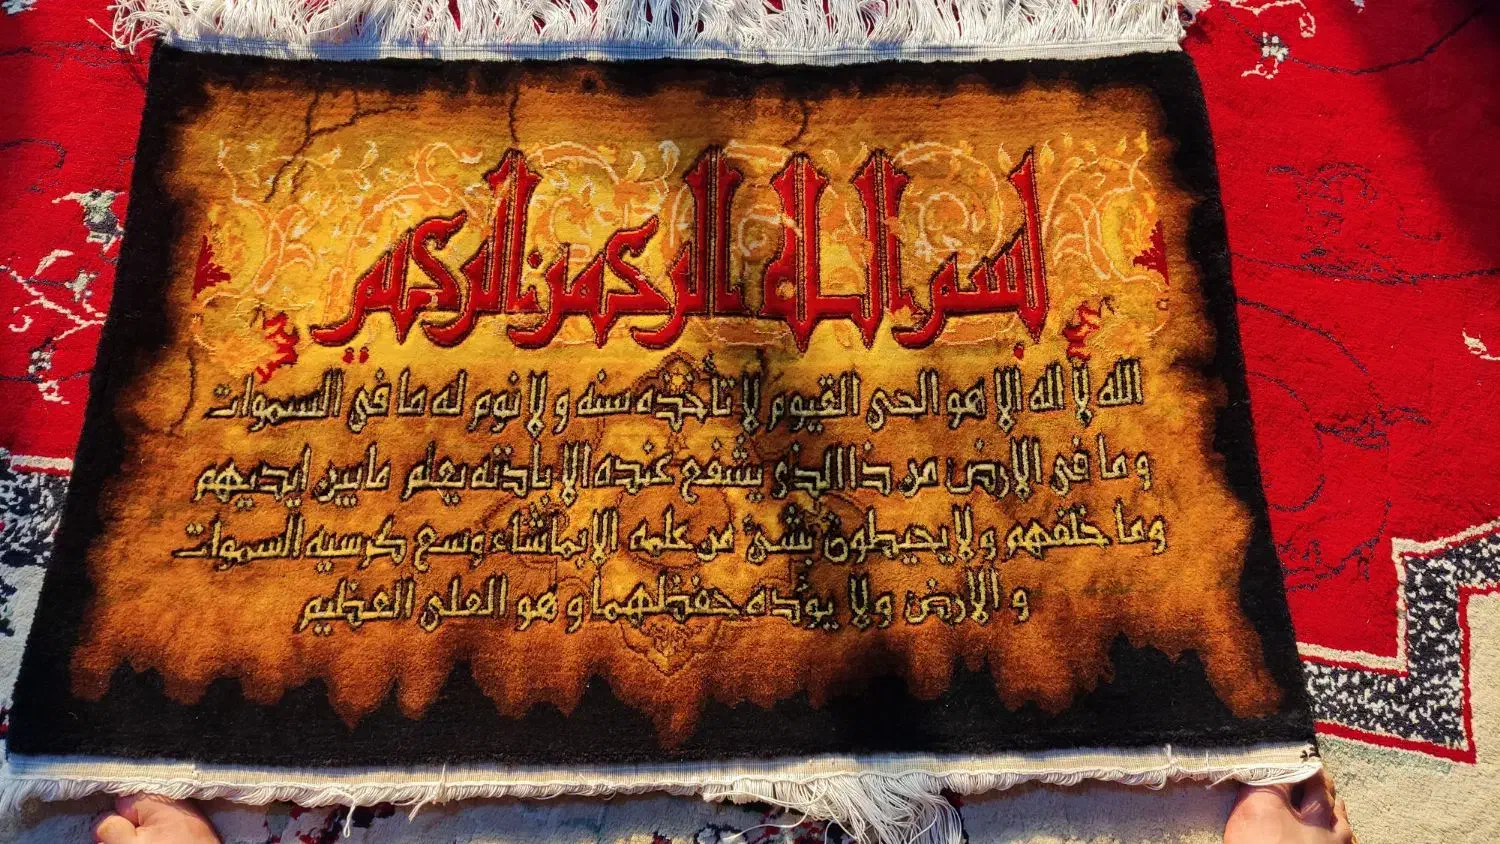 بسم الله الرحمن الرحيم
الله لا اله الا هو الحى القيوم لا تأخذه سنه و لا نوم له ما فى السموات
و ما فى الارض من ذا الذى يشفع عنده الا باذنه يعلم ما بين ايديهم
و ما خلفهم و لا يحيطون بشئ من علمه الا بماشاء وسع كرسيه السموات
و الارض ولا يؤده حفظهما و هو العلى العظيم